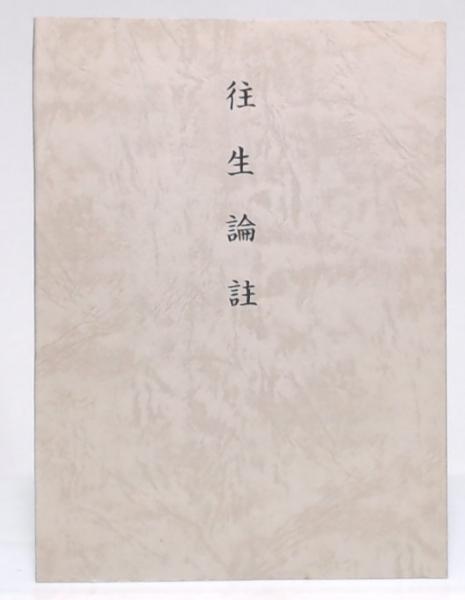 往生論註